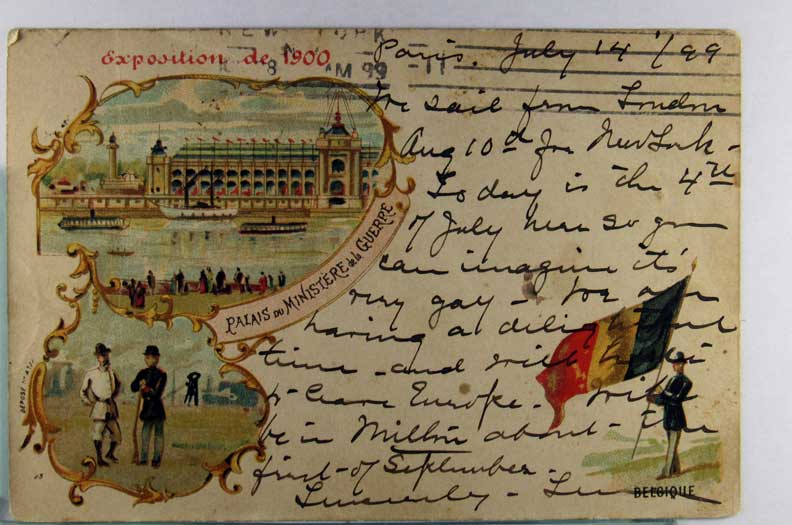 Exposition de 1900
NEW YORK
M 99
Paris. July 14 / 99
We sail from London
Aug 10th for New York -
Today is the 4th
of July here so you
can imagine it's
very gay - We are
having a delightful
time - and will hate
to leave Europe - Will
be in Milton about - the
first - of September -
Sincerely -
PALAIS DU MINISTÈRE de la GUERRE
BELGIQUE